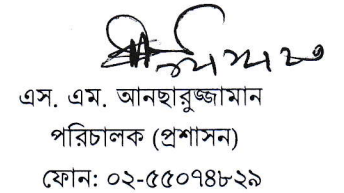 এস. এম. আনছারুজ্জামান
পরিচালক (প্রশাসন)
ফোন: ০২-৫৫০৭৪৮২৯